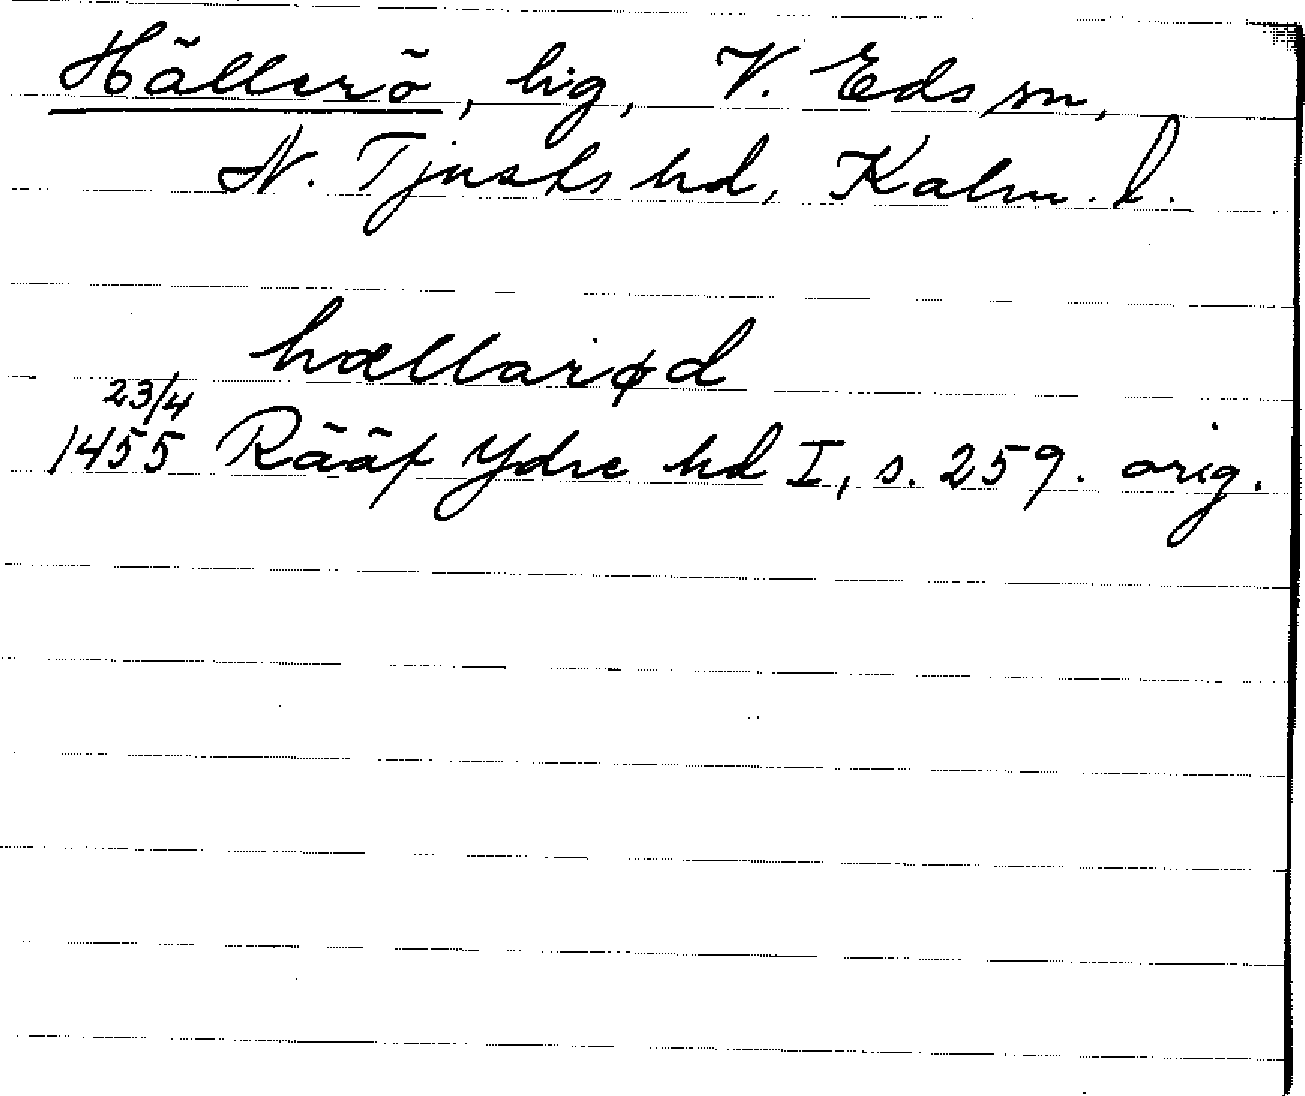 Hällerö, hg, V. Eds sn,
N. Tjusts hd, Kalm. l.
hællarød
23/4
1455 Rääf Ydre hd I, s. 259. orig.